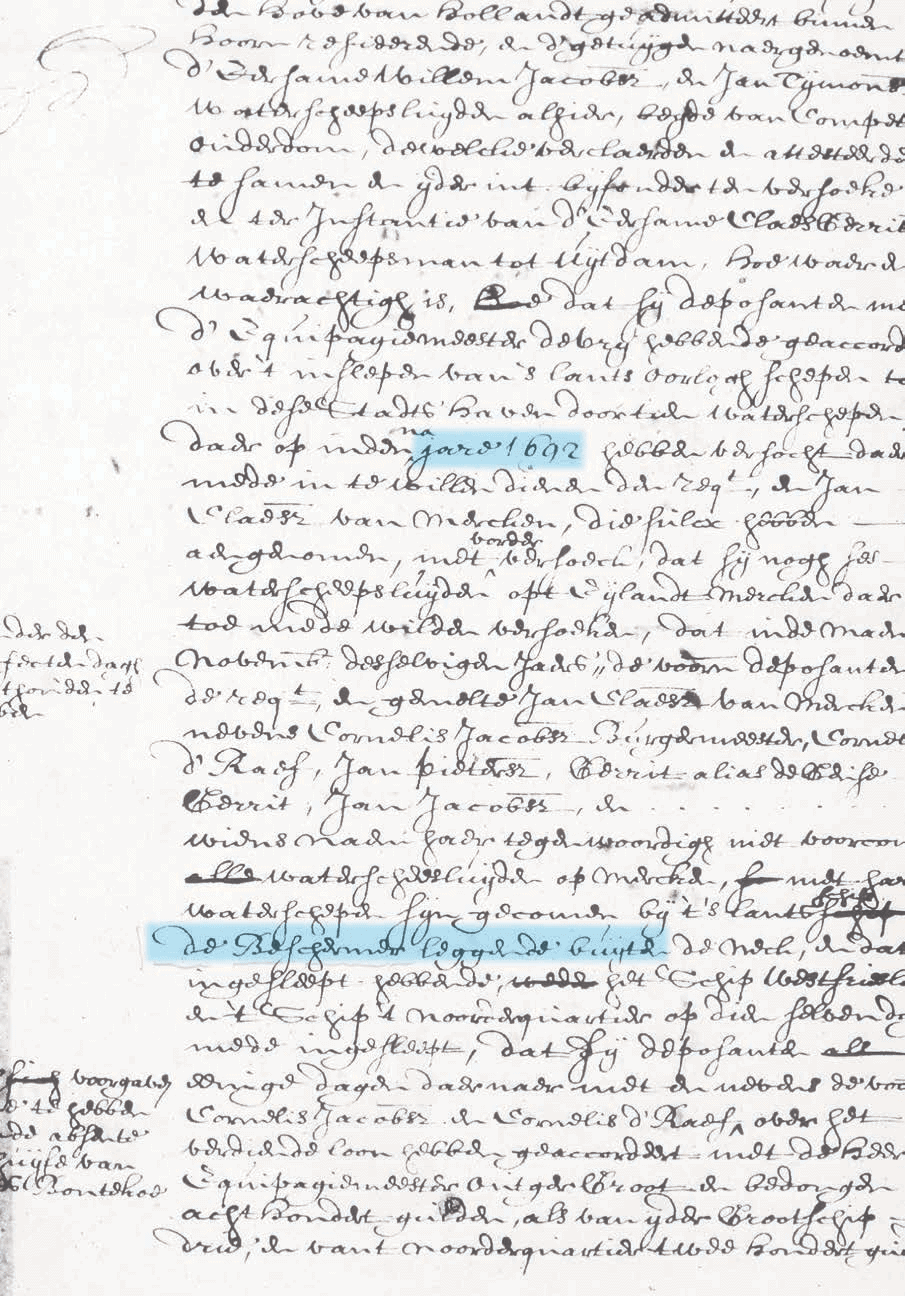 den Hove van Hollandt geadmitteert binnen
Hoorn resideerende, en d'getuijgen naergenoemt
d'Eersame Willem Jacobsz, en Jan Tijmons
waterscheepsluijden alhier, beijde van Compet
ouderdom, dewelcke verclaerden en attesteerde
te samen en ijder int bijsonder ten versoeke
en ter Instantie van d'Eersame Claes Gerrit
waterscheepsman tot Uijtdam, hoe waer en
waerachtigh is, dat sij deposanten me
d'Equipagiemeester de Vrij hebbende geaccord
over't inslepen van 's lants oorlogh schepen
in dese Stadts haven door tien waterschepen
na
daer op inden jare 1692 hebben versocht daer
mede in te willen dienen den reqt, en Jan
Claesz van Mercken, die sulcx hebben
vorder
aengenomen, met versoeck, dat sij nogh ses
waterscheepsluijden opt Eijlandt Mercken daer
toe mede wilden versoeken, dat inde maen
Novemb. desselvigen Jaers, de voorn deposanten
de reqt, en gemelte Jan Claesz van Mercken
nevens Cornelis Jacobsz Burgermeester, Corne
d'Raef, Jan Pietersz, Gerrit alias de
Gerrit, Jan Jacobsz, en . . . . . .
wiens naem haer tegenwoordigh niet voorcom
alle waterscheepsluijden op Mercken, met haer
schip
waterschepen sijn gecomen bij 't 's lants schip
de Beschermer leggende buijten de Neck, en dat
ingesleept hebbende, mede het Schip Westfriesl
en 't Schip 't Noorderquartier op dien selven d
mede ingesleept, dat sij deposanten all
eenige dagen daer naer met en nevens de voo
Cornelis Jacobsz en Cornelis d'Raef, over het
verdiende loon hebben geaccordeert met de Heer
Equipagiemeester Outger Groot en bedongen
acht hondert gulden, als van ijder Groot schip
drie, en vant Noorderquartier twee hondert gu
der den
dagh
te
voorgaven
te hebben
de absente
huijse van
Bontekoe